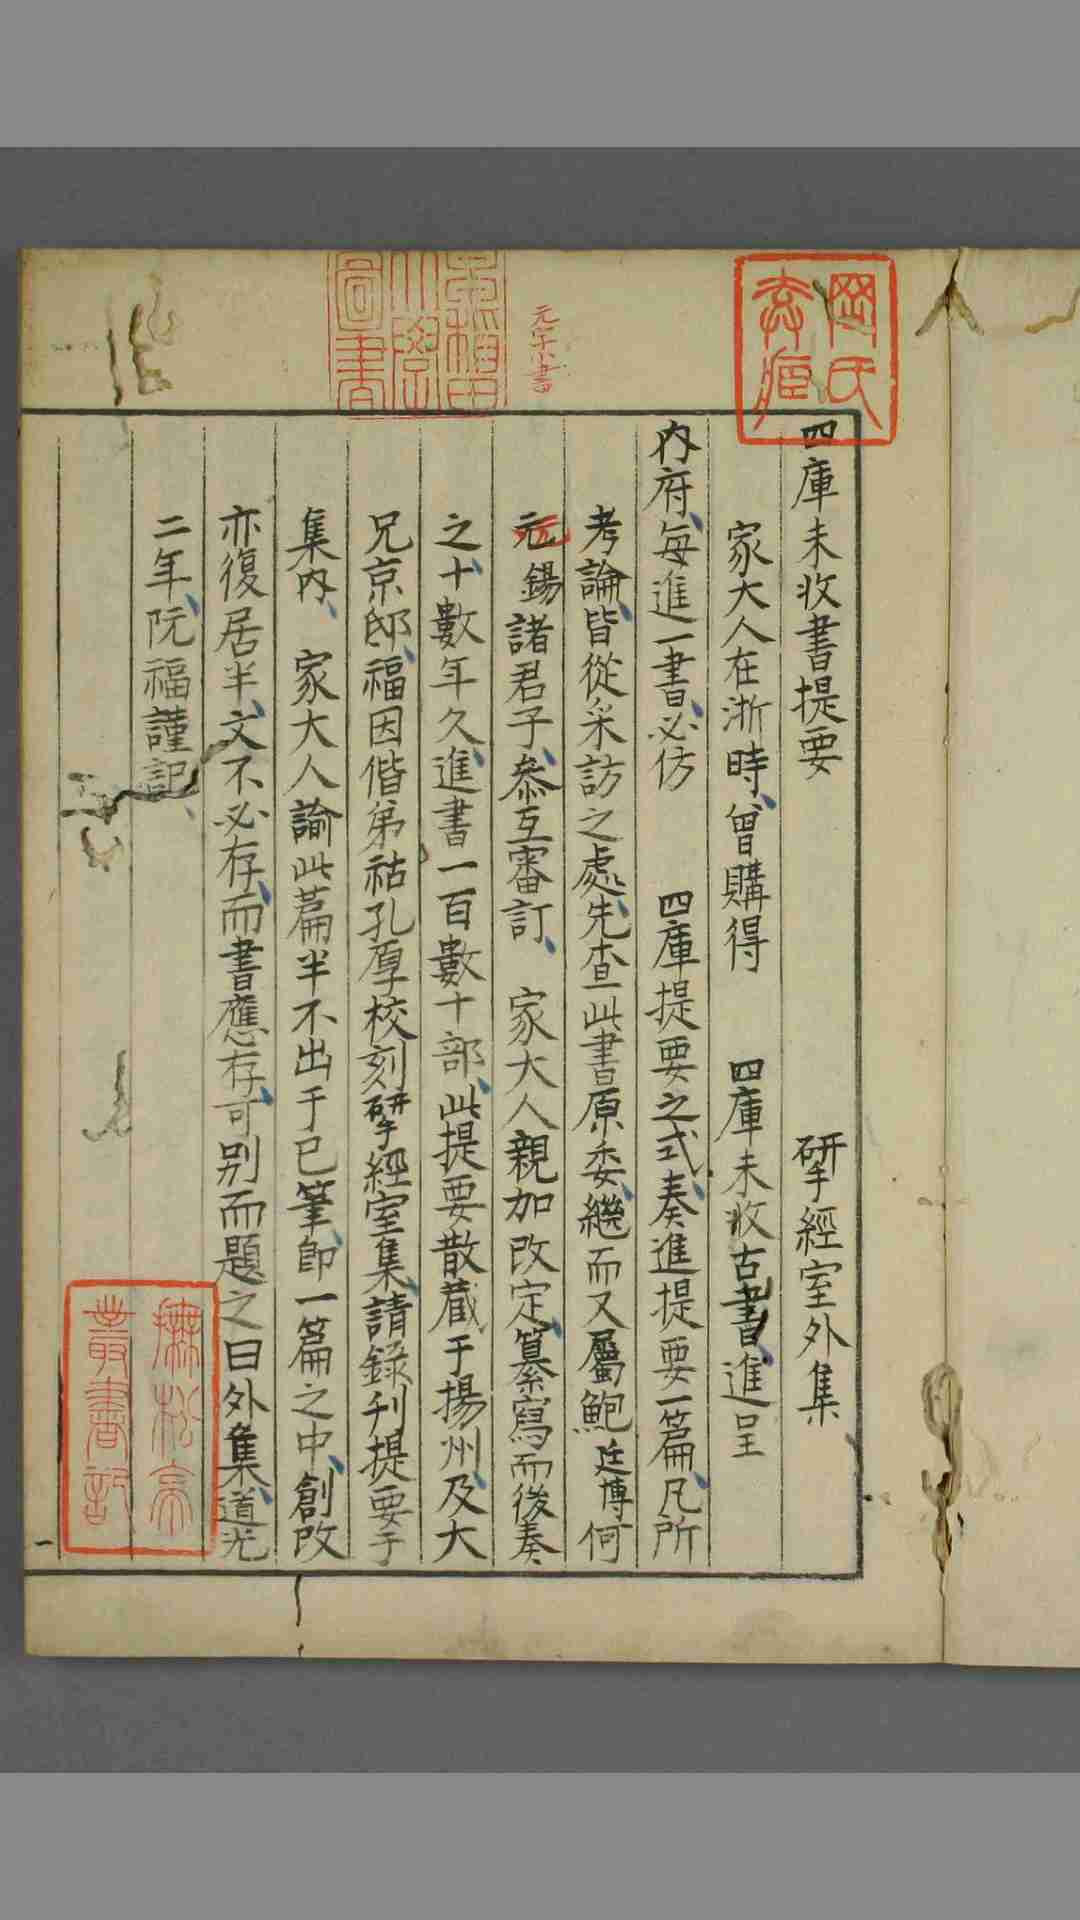 四庫未收書提要 揅經室外集
家大人在浙時、曾購得 四庫未收古書、進呈
内府、每進一書、必仿 四庫提要之式、奏進提要一篇、凡所
考論、皆從采訪之處、先查此書原委、繼而又屬鮑廷博何
元錫諸君子、叅互審訂、 家大人親加改定、纂寫而後奏
之、十數年久、進書一百數十部、此提要散藏于揚州、及大
兄京邸、福因偕弟祜孔厚校刻揅經室集、請錄刊提要于
集内、 家大人諭此篇半不出于己筆、卽一篇之中、創改
亦復居半、文不必存、而書應存、可别而題之曰外集、道光
二年、阮福謹記、
一
元字小書
岡氏
圖書
撫松亭
叢書記